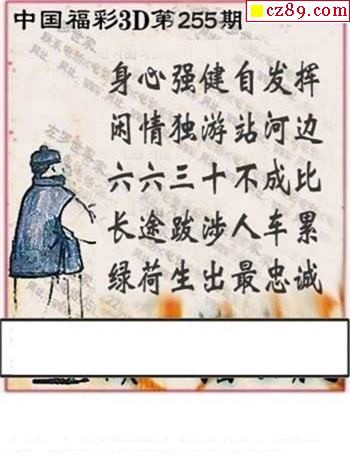 cz89.com
中国福彩3D第255期
身心强健自发挥
闲情独游站河边
六六三十不成比
长途跋涉人车累
绿荷生出最忠诚